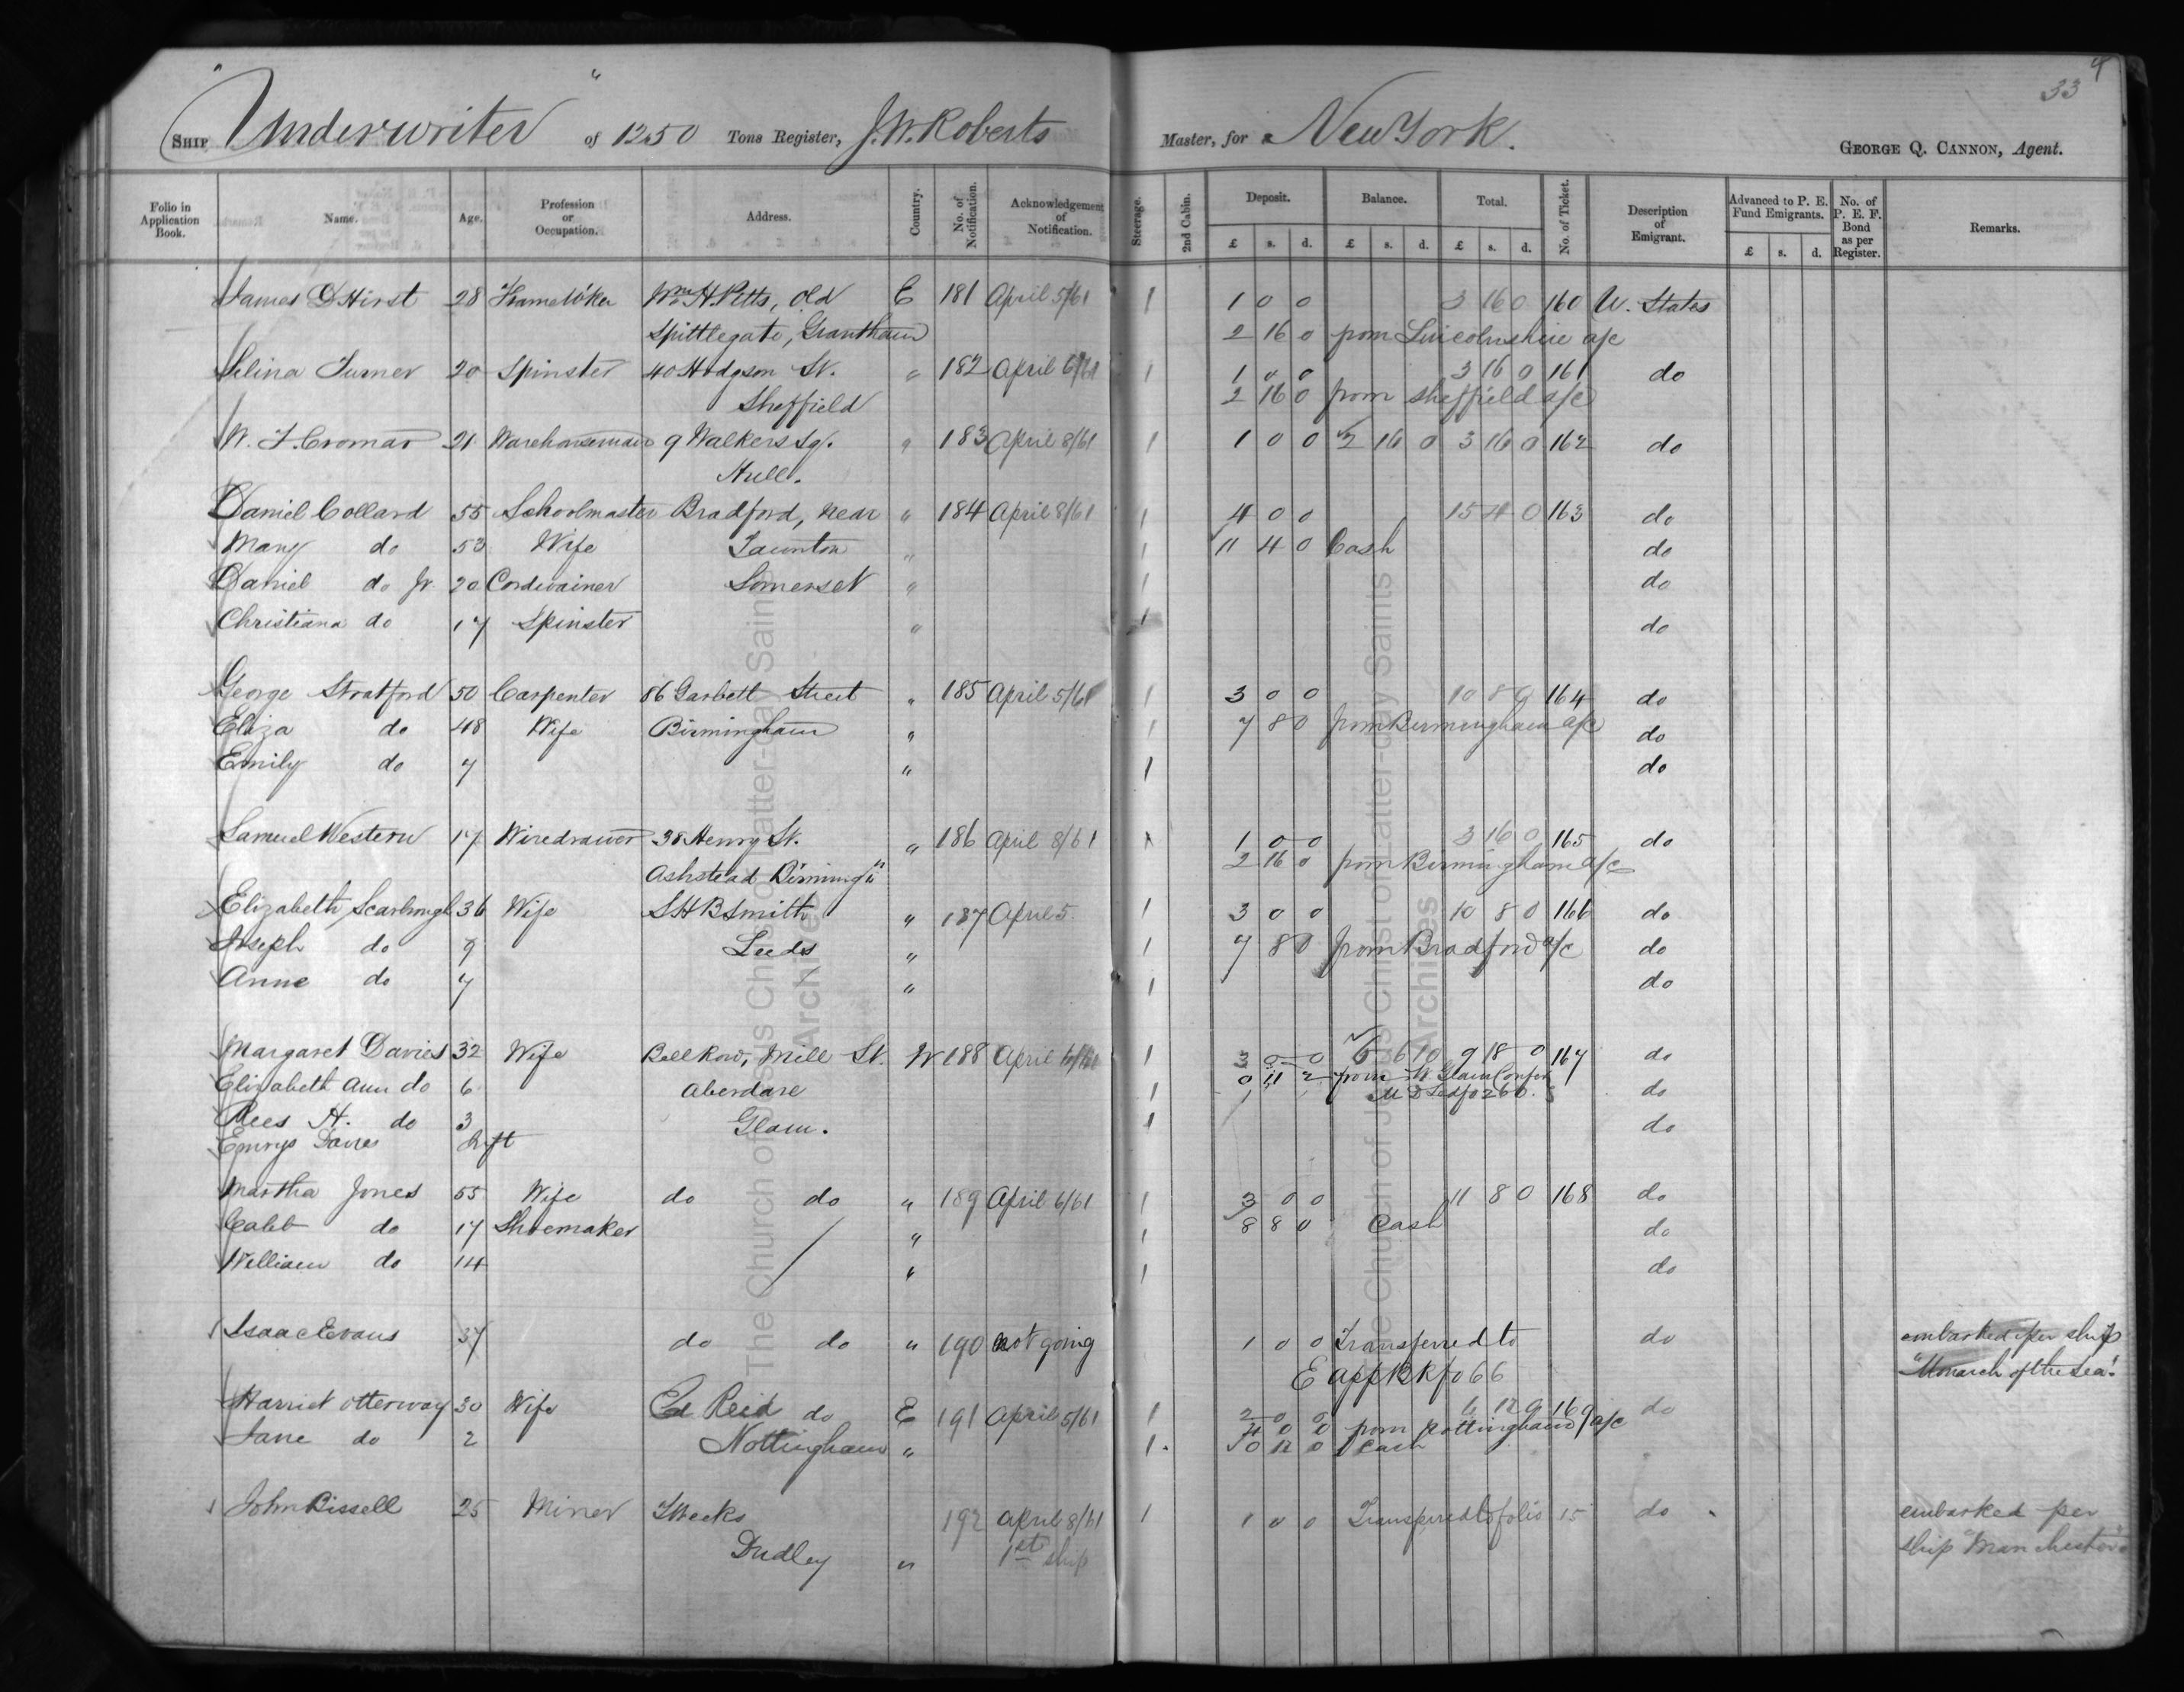 33 4
Ship "Underwriter" of 1250 Tons Register, J.W. Roberts Master, for New York. George Q. Cannon, Agent.
Folio in Application Book. Name. Age. Profession or Occupation. Address. Country. No. of Notification. Acknowledgement of Notification. Steerage. 2nd Cabin. Deposit. £ s. d. Balance. £ s. d. Total. £ s. d. No. of Ticket. Description of Emigrant. Advanced to P. E. Fund Emigrants. £ s. d. No. of P. E. F. Bond as per Register. Remarks.
James D Hirst 28 Wm H. Pitts, Old E 181 April 5/61 1 1 0 0 3 16 0 160 U. States
Spittlegate, Grantham 2 16 0 from Lincolnshire a/c
Selina Turner 20 Spinster 40 Hodgson St. " 182 April 6/61 1 1 0 0 3 16 0 161 do
Sheffield 2 16 0 from Sheffield a/c
W. F. Cromar 21 Warehouseman 9 Walkers Sq. " 183 April 8/61 1 1 0 0 2 16 0 3 16 0 162 do
Hull.
Daniel Collard 55 Schoolmaster Bradford, near " 184 April 8/61 1 4 0 0 15 4 0 163 do
Mary do 53 Wife Taunton " 1 11 4 0 Cash do
Daniel do Jr. 20 Cordwainer Somerset " 1 do
Christiana do 17 Spinster " 1 do
George Stratford 50 Carpenter 86 Garbett Street " 185 April 5/61 1 3 0 0 10 8 0 164 do
Eliza do 48 Wife Birmingham " 1 7 8 0 from Birmingham a/c do
Emily do 7 " 1 do
Samuel Western 17 Wiredrawer 38 Henry St. " 186 April 8/61 1 1 0 0 3 16 0 165 do
Ashstead Birming" 2 16 0 from Birmingham a/c
Elizabeth Scarbrough 36 Wife S H B Smith " 187 April 5 1 3 0 0 10 8 0 166 do
Joseph do 9 Leeds " 1 7 8 0 from Bradford a/c do
Anne do 7 " 1 do
Margaret Davies 32 Wife Bell Row, Mill St. W 188 April 6/61 1 3 0 0 6 6 10 9 18 0 167 do
Elizabeth Ann do 6 Aberdare 1 0 11 2 from W. Glam Confer do
Rees H. do 3 Glam. 1 do
Emrys Davies Inft
Martha Jones 55 Wife do do " 189 April 6/61 1 3 0 0 11 8 0 168 do
Caleb do 17 Shoemaker " 1 8 8 0 Cash do
William do 14 " 1 do
Isaac Evans 37 do do " 190 not going 1 0 0 Transferred to do embarked per ship
E app Bk fo 66 "Monarch of the Sea".
Harriet Otterway 30 Wife Ed Reid do E 191 April 5/61 1 2 0 0 6 12 0 169 do
4 0 0 from Nottingham a/c
Jane do 2 Nottingham " 1 0 12 0 Cash
John Bissell 25 Miner T Weeks 192 April 8/61 1 1 0 0 Transferred to folio 15 do embarked per
Dudley " 1st ship ship "Manchester"
The Church of Jesus Christ of Latter-day Saints
Archives
The Church of Jesus Christ of Latter-day Saints
Archives